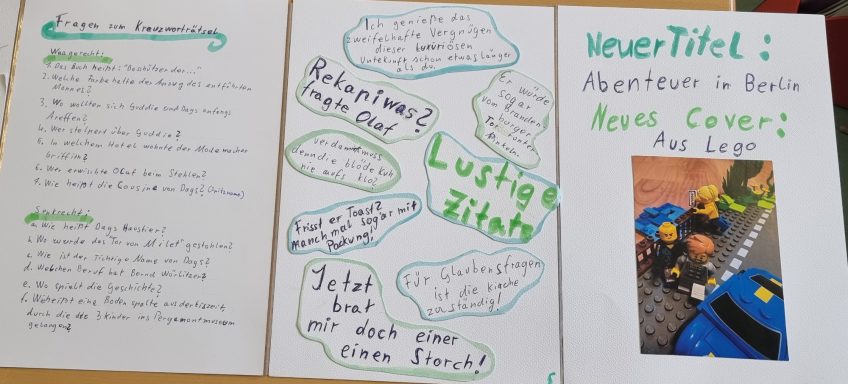 Fragen zum Kreuzworträtsel
Waagerecht:
1. Das Buch heißt: "Beschützer der..."
2. Welche Farbe hatte der Anzug des entführten
Mannes?
3. Wo wollten sich Guddie und Dags anfangs
treffen?
4. Wer stolpert über Guddie?
5. In welchem Hotel wohnte der Modemacher
Griffith?
6. Wer erwischte Olaf beim Stehlen?
7. Wie heißt die Cousine von Dags? (Spitzname)
Senkrecht:
a. Wie heißt Dags Haustier?
b. Wo wurde das "Tor von Milet" gestohlen?
c. Wie ist der richtige Name von Dags?
d. Welchen Beruf hat Bernd Würlitzer?
e. Wo spielt die Geschichte?
f. Wie heißt eine Bodenspalte aus der Eiszeit,
durch die die 3 Kinder ins Pergamontmuseum
gelangen?
Ich genieße das
zweifelhafte Vergnügen
dieser luxuriösen
Unterkunft schon etwas länger
als du.
Rekapiwas?
fragte Olaf
Er würde
sogar
vom Branden-
burger
Tor runter
pinkeln.
verdammt muss
denn die blöde Kuh
nie aufs Klo?
Lustige
Zitate
Frisst er Toast?
Manchmal sogar mit
Packung!
Für Glaubensfragen
ist die Kirche
zuständig!
Jetzt
brat
mir doch einer
einen Storch!
5
Neuer Titel:
Abenteuer in Berlin
Neues Cover:
Aus Lego